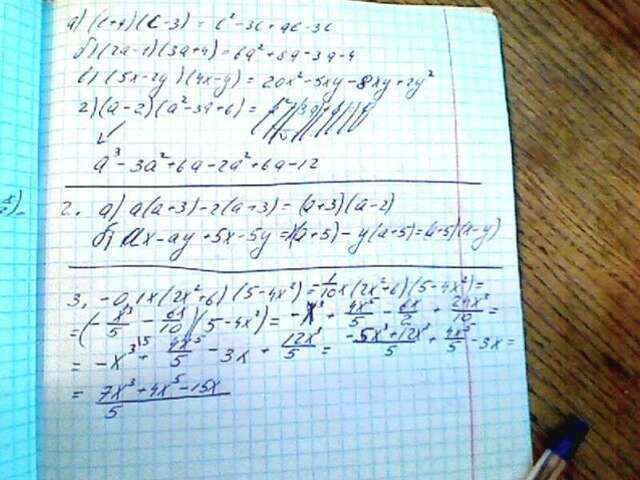 а) (c+4)(c-3) = c²-3c+4c-3c
б) (2a-1)(3a+4) = 6a²+8a-3a-4
в) (5x-2y)(4x-y) = 20x²-5xy-8xy+2y²
г) (a-2)(a²-3a+6) =
a³-3a²+6a-2a²+6a-12
2. а) a(a+3)-2(a+3) = (a+3)(a-2)
б) ax-ay+5x-5y = x(a+5)-y(a+5) = (a+5)(x-y)
3. -0,1x(2x²+6)(5-4x²) = 1/10x(2x²+6)(5-4x²) =
= (-x³/5 - 6x/10)(5-4x²) = -x³ + 4x⁵/5 - 6x/2 + 24x³/10 =
= -x³ + 4x⁵/5 - 3x + 12x³/5 = -5x³+12x³/5 + 4x⁵/5 - 3x =
= 7x³+4x⁵-15x/5